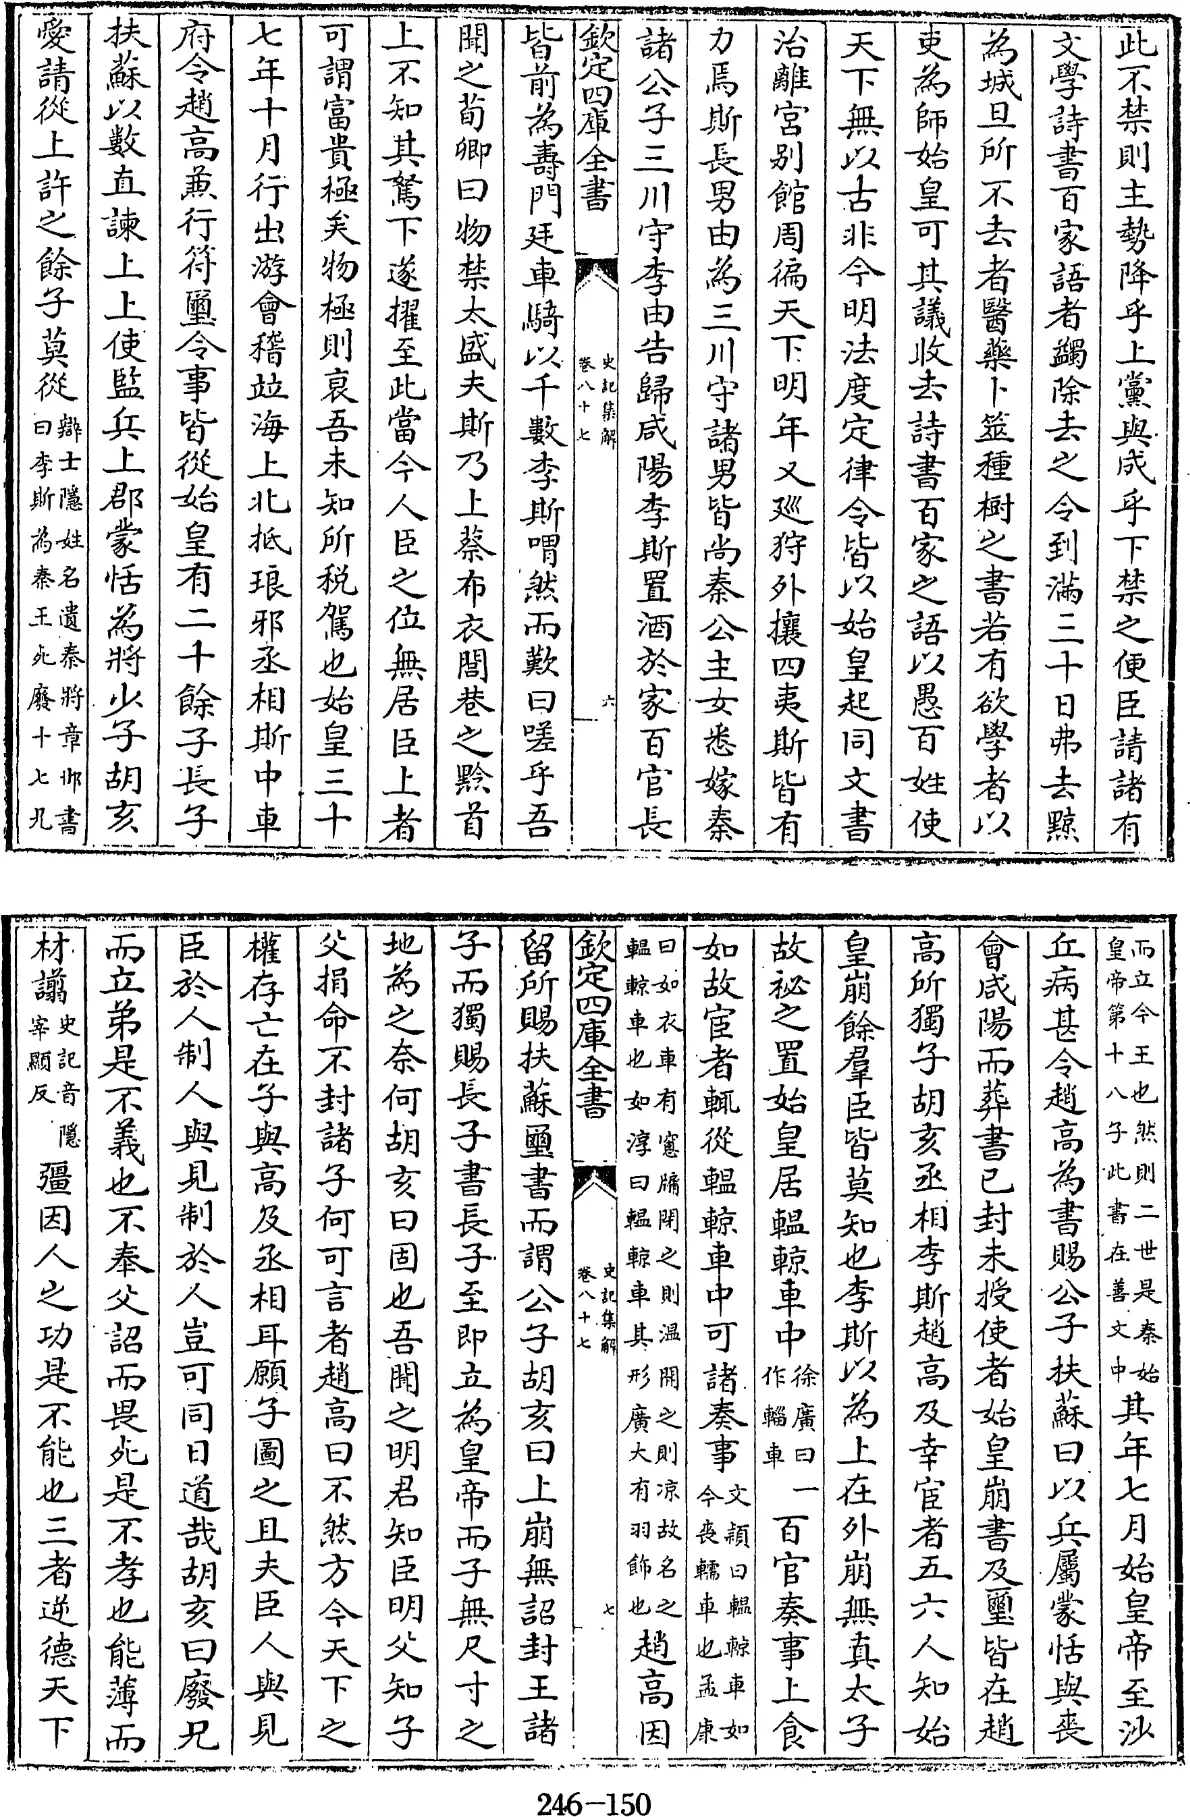 此不禁則主勢降乎上黨與成乎下禁之便臣請諸有
文學詩書百家語者蠲除去之令到滿三十日弗去黥
為城旦所不去者醫藥卜筮種樹之書若有欲學者以
吏為師始皇可其議收去詩書百家之語以愚百姓使
天下無以古非今明法度定律令皆以始皇起同文書
治離宮别館周徧天下明年又廵狩外攘四夷斯皆有
力焉斯長男由為三川守諸男皆尚秦公主女悉嫁秦
諸公子三川守李由告歸咸陽李斯置酒於家百官長
欽定四庫全書 史記集解 卷八十七 六
皆前為壽門廷車騎以千數李斯喟然而歎曰嗟乎吾
聞之荀卿曰物禁太盛夫斯乃上蔡布衣閭巷之黔首
上不知其駑下遂擢至此當今人臣之位無居臣上者
可謂富貴極矣物極則衰吾未知所税駕也始皇三十
七年十月行出游會稽竝海上北抵琅邪丞相斯中車
府令趙高兼行符璽令事皆從始皇有二十餘子長子
扶蘇以數直諫上上使監兵上郡蒙恬為將少子胡亥
愛請從上許之餘子莫從辯士隱姓名遺秦將章邯書曰李斯為秦王死廢十七兄
而立今王也然則二世是秦始皇帝第十八子此書在善文中其年七月始皇帝至沙
丘病甚令趙高為書賜公子扶蘇曰以兵屬蒙恬與喪
會咸陽而葬書已封未授使者始皇崩書及璽皆在趙
高所獨子胡亥丞相李斯趙高及幸宦者五六人知始
皇崩餘羣臣皆莫知也李斯以為上在外崩無真太子
故祕之置始皇居轀輬車中徐廣曰一作輜車百官奏事上食
如故宦者輒從轀輬車中可諸奏事文穎曰轀輬車如今喪轜車也孟康
曰如衣車有窻牖閉之則温開之則凉故名之轀輬車也如淳曰轀輬車其形廣大有羽飾也趙高因
欽定四庫全書 史記集解 卷八十七 七
留所賜扶蘇璽書而謂公子胡亥曰上崩無詔封王諸
子而獨賜長子書長子至即立為皇帝而子無尺寸之
地為之奈何胡亥曰固也吾聞之明君知臣明父知子
父捐命不封諸子何可言者趙高曰不然方今天下之
權存亡在子與高及丞相耳願子圖之且夫臣人與見
臣於人制人與見制於人豈可同日道哉胡亥曰廢兄
而立弟是不義也不奉父詔而畏死是不孝也能薄而
材譾史記音隱宰顯反彊因人之功是不能也三者逆德天下
246-150